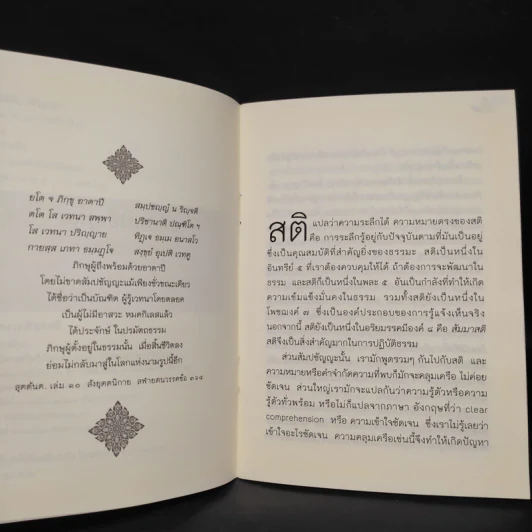 ยโต จ ภิกขุ อาตาปี สมฺปชญฺญํ น ริญฺจติ
ตโต โส เวทนา สพฺพา ปริชานาติ ปณฺฑิโต ฯ
โส เวทนา ปริญฺญาย ทิฏฺเฐ ธมฺเม อนาสโว
กายสฺส เภทา ธมฺมฏฺโฐ สงฺขฺยํ นุเปติ เวทคู
ภิกษุผู้ถึงพร้อมด้วยอาตาปี
โดยไม่ขาดสัมปชัญญะแม้เพียงชั่วขณะเดียว
ได้ชื่อว่าเป็นบัณฑิต ผู้รู้เวทนาโดยตลอด
เป็นผู้ไม่มีอาสวะ หมดกิเลสแล้ว
ได้ประจักษ์ ในปรมัตถธรรม
ภิกษุผู้ตั้งอยู่ในธรรมนั้น เมื่อสิ้นชีวิตลง
ย่อมไม่กลับมาสู่ในโลกแห่งนามรูปนี้อีก
สุตตันต. เล่ม ๑๐ สังยุตตนิกาย สฬายตนวรรคข้อ
สติ แปลว่าความระลึกได้ ความหมายตรงของสติ
คือ การระลึกรู้อยู่กับปัจจุบันตามที่มันเป็นอยู่
ซึ่งเป็นคุณสมบัติที่สำคัญยิ่งของธรรมะ สติเป็นหนึ่งใน
อินทรีย์ ๕ ที่เราต้องควบคุมให้ได้ ถ้าต้องการจะพัฒนาใน
ธรรม และสติก็เป็นหนึ่งในพละ ๕ อันเป็นกำลังที่ทำให้เกิด
ความเข้มแข็งมั่นคงในธรรม รวมทั้งสติยังเป็นหนึ่งใน
โพชฌงค์ ๗ ซึ่งเป็นองค์ประกอบของการรู้แจ้งเห็นจริง
นอกจากนี้ สติยังเป็นหนึ่งในอริยมรรคมีองค์ ๘ คือ สัมมาสติ
สติจึงเป็นสิ่งสำคัญมากในการปฏิบัติธรรม
ส่วนสัมปชัญญะนั้น เรามักพูดรวมๆ กันไปกับสติ และ
ความหมายหรือคำจำกัดความที่พบก็มักจะคลุมเครือ ไม่ค่อย
ชัดเจน ส่วนใหญ่เรามักจะแปลกันว่าความรู้ตัวหรือความ
รู้ตัวทั่วพร้อม หรือไม่ก็แปลจากภาษา อังกฤษที่ว่า clear
comprehension หรือ ความเข้าใจชัดเจน ซึ่งเราไม่รู้เลยว่า
เข้าใจอะไรชัดเจน ความคลุมเครือเช่นนี้จึงทำให้เกิดปัญหา